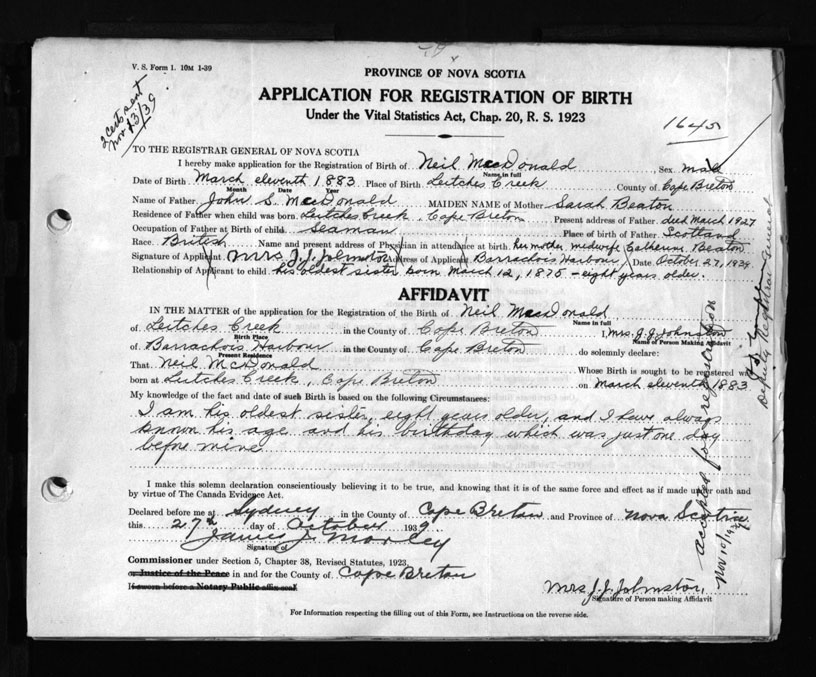 V. S. Form 1. 10M 1-39
PROVINCE OF NOVA SCOTIA
2 Certs sent
Nov 13/39
APPLICATION FOR REGISTRATION OF BIRTH
Under the Vital Statistics Act, Chap. 20, R. S. 1923
1645
TO THE REGISTRAR GENERAL OF NOVA SCOTIA
I hereby make application for the Registration of Birth of Neil MacDonald Sex male
Name in full
Date of Birth March eleventh 1883 Place of Birth Leitches Creek County of Cape Breton
Month Date Year
Name of Father John S. MacDonald MAIDEN NAME of Mother Sarah Beaton
Residence of Father when child was born Leitches Creek, Cape Breton Present address of Father died March 1927
Occupation of Father at Birth of child Seaman Place of birth of Father Scotland
Race British Name and present address of Physician in attendance at birth her mother, midwife Catherine Beaton
Signature of Applicant Mrs J. J. Johnston Address of Applicant Barrachois Harbour Date October 27, 1939
Relationship of Applicant to child his oldest sister, born March 12, 1875 - eight years older.
AFFIDAVIT
IN THE MATTER of the application for the Registration of the Birth of Neil MacDonald
Name in full
of Leitches Creek in the County of Cape Breton I, Mrs. J. J. Johnston
Birth Place Name of Person Making Affidavit
of Barrachois Harbour in the County of Cape Breton do solemnly declare:
Present Residence
That Neil McDonald Whose Birth is sought to be registered was
born at Leitches Creek, Cape Breton on March eleventh 1883
My knowledge of the fact and date of such Birth is based on the following Circumstances:
I am his oldest sister, eight years older, and I have always
known his age and his birthday which was just one day
before mine
I make this solemn declaration conscientiously believing it to be true, and knowing that it is of the same force and effect as if made under oath and
by virtue of The Canada Evidence Act.
Declared before me at Sydney in the County of Cape Breton and Province of Nova Scotia
this 27th day of October 1939
James J. Morley
Signature of
Commissioner under Section 5, Chapter 38, Revised Statutes, 1923
or Justice of the Peace in and for the County of Cape Breton
If sworn before a Notary Public affix seal
Mrs. J. J. Johnston
Signature of Person making Affidavit
For Information respecting the filling out of this Form, see Instructions on the reverse side.
accepted for registration
Nov 10/1939
Deputy Registrar General